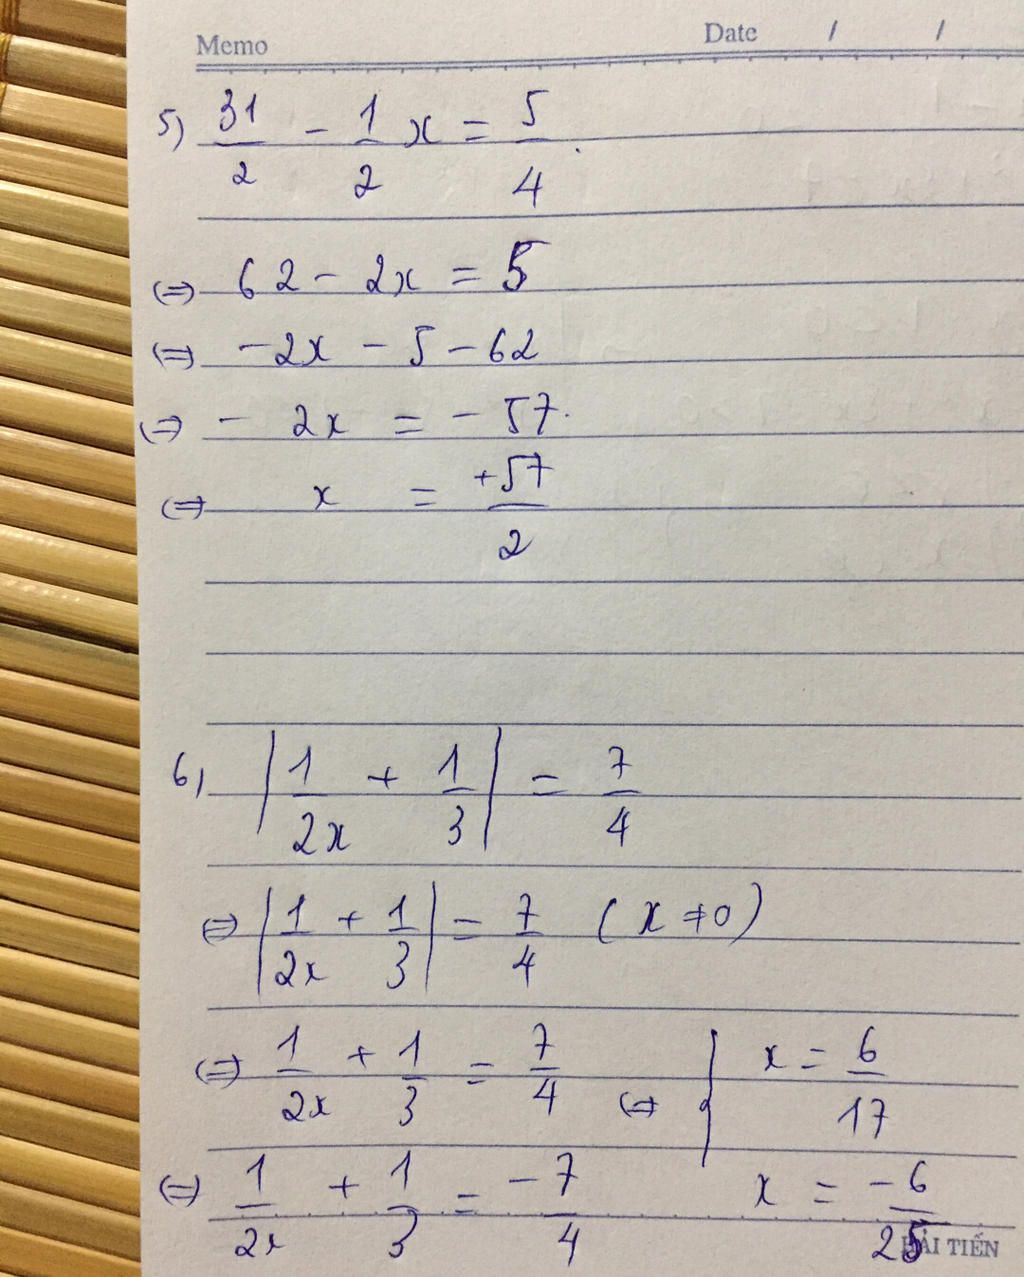 Memo Date / /
5) 31/2 - 1/2 x = 5/4
⇔ 62 - 2x = 5
⇔ -2x - 5 - 62
⇔ - 2x = - 57.
⇔ x = +57/2
6, |1/2x + 1/3| = 7/4
⇔ |1/2x + 1/3| = 7/4 (x ≠ 0)
⇔ 1/2x + 1/3 = 7/4 ⇔ x = 6/17
⇔ 1/2x + 1/3 = -7/4 x = -6/25
HẢI TIẾN